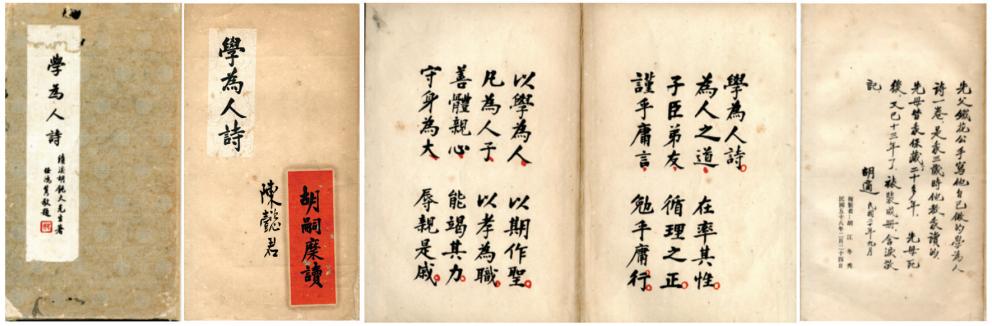 學為人詩
績溪胡鈍夫先生著
任鴻雋敬題
學為人詩
陳懿君
胡嗣穈讀
學為人詩
為人之道 在率其性
子臣弟友 循理之正
謹乎庸言 勉乎庸行
以學為人 以期作聖
凡為人子 以孝為職
善體親心 能竭其力
守身為大 辱親是戚
先父鐵花公手寫他自己做的學為人
詩一卷,是我三歲時他教我讀的。
先母替我保藏二十多年。先母死
後,又已十三年了。裱裝成冊,含淚敬
記
胡適 民國二十年九月
複製者:胡江冬秀
民國五十八年二月二十四日